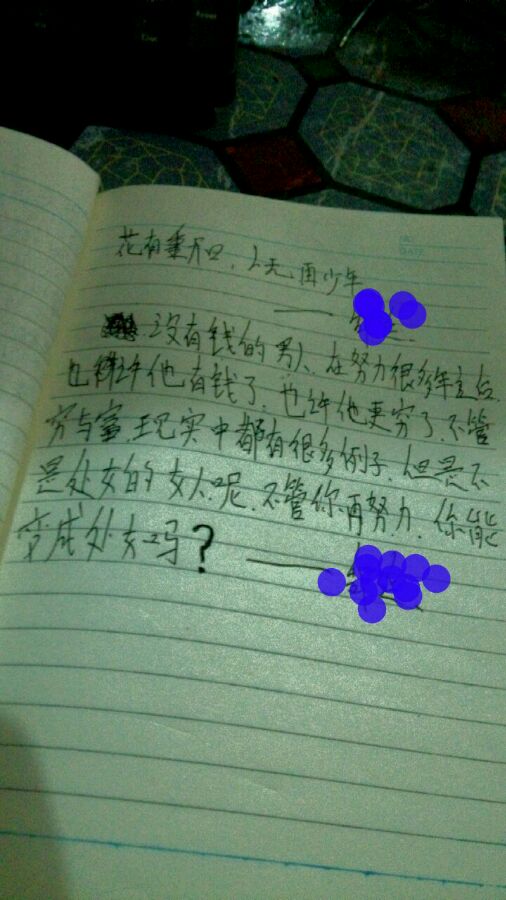 花有重开日,人无再少年
没有钱的男人,在努力很多年之后,
也许他有钱了,也许他更穷了,不管
穷与富,现实中都有很多例子,但是不
是处女的女人呢,不管你再努力,你能
变成处女吗?